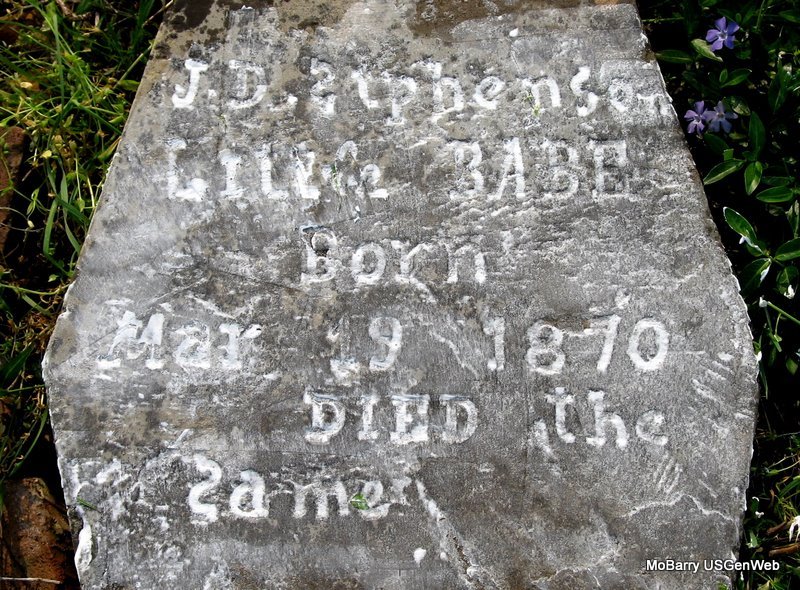 J.D. Stphenson
LILVG BABE
Born
Mar 19 1870
DIED the
Same
MoBarry USGenWeb